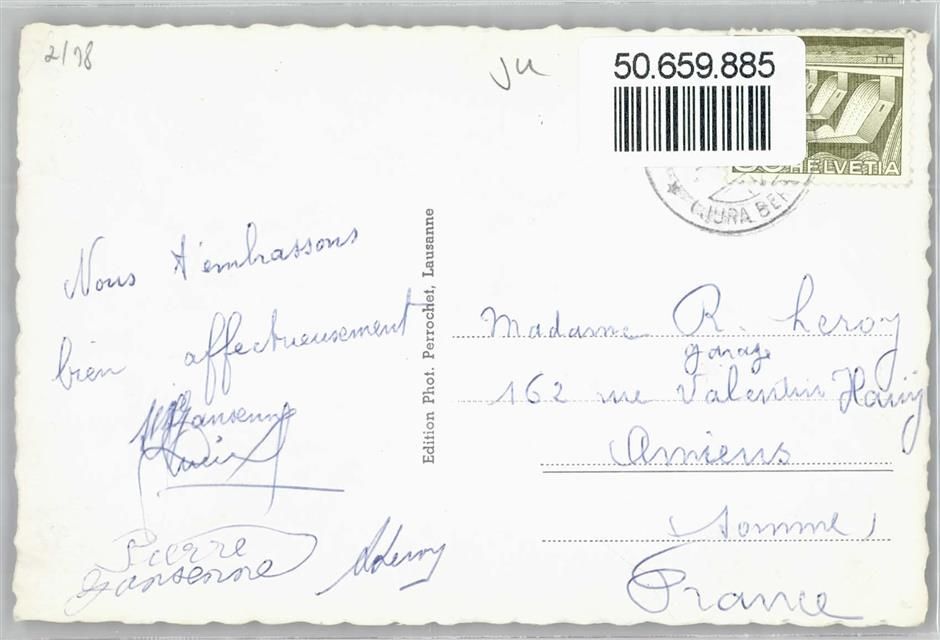 2/18
JU
50.659.885
HELVETIA
JURA BER
Nous t'embrassons
bien affectueusement
Jansenne
Pierre
Jansenne
Leroy
Edition Phot. Perrochet, Lausanne
Madame R. Leroy
garage
162 rue Valentin Haüy
Amiens
Somme
France